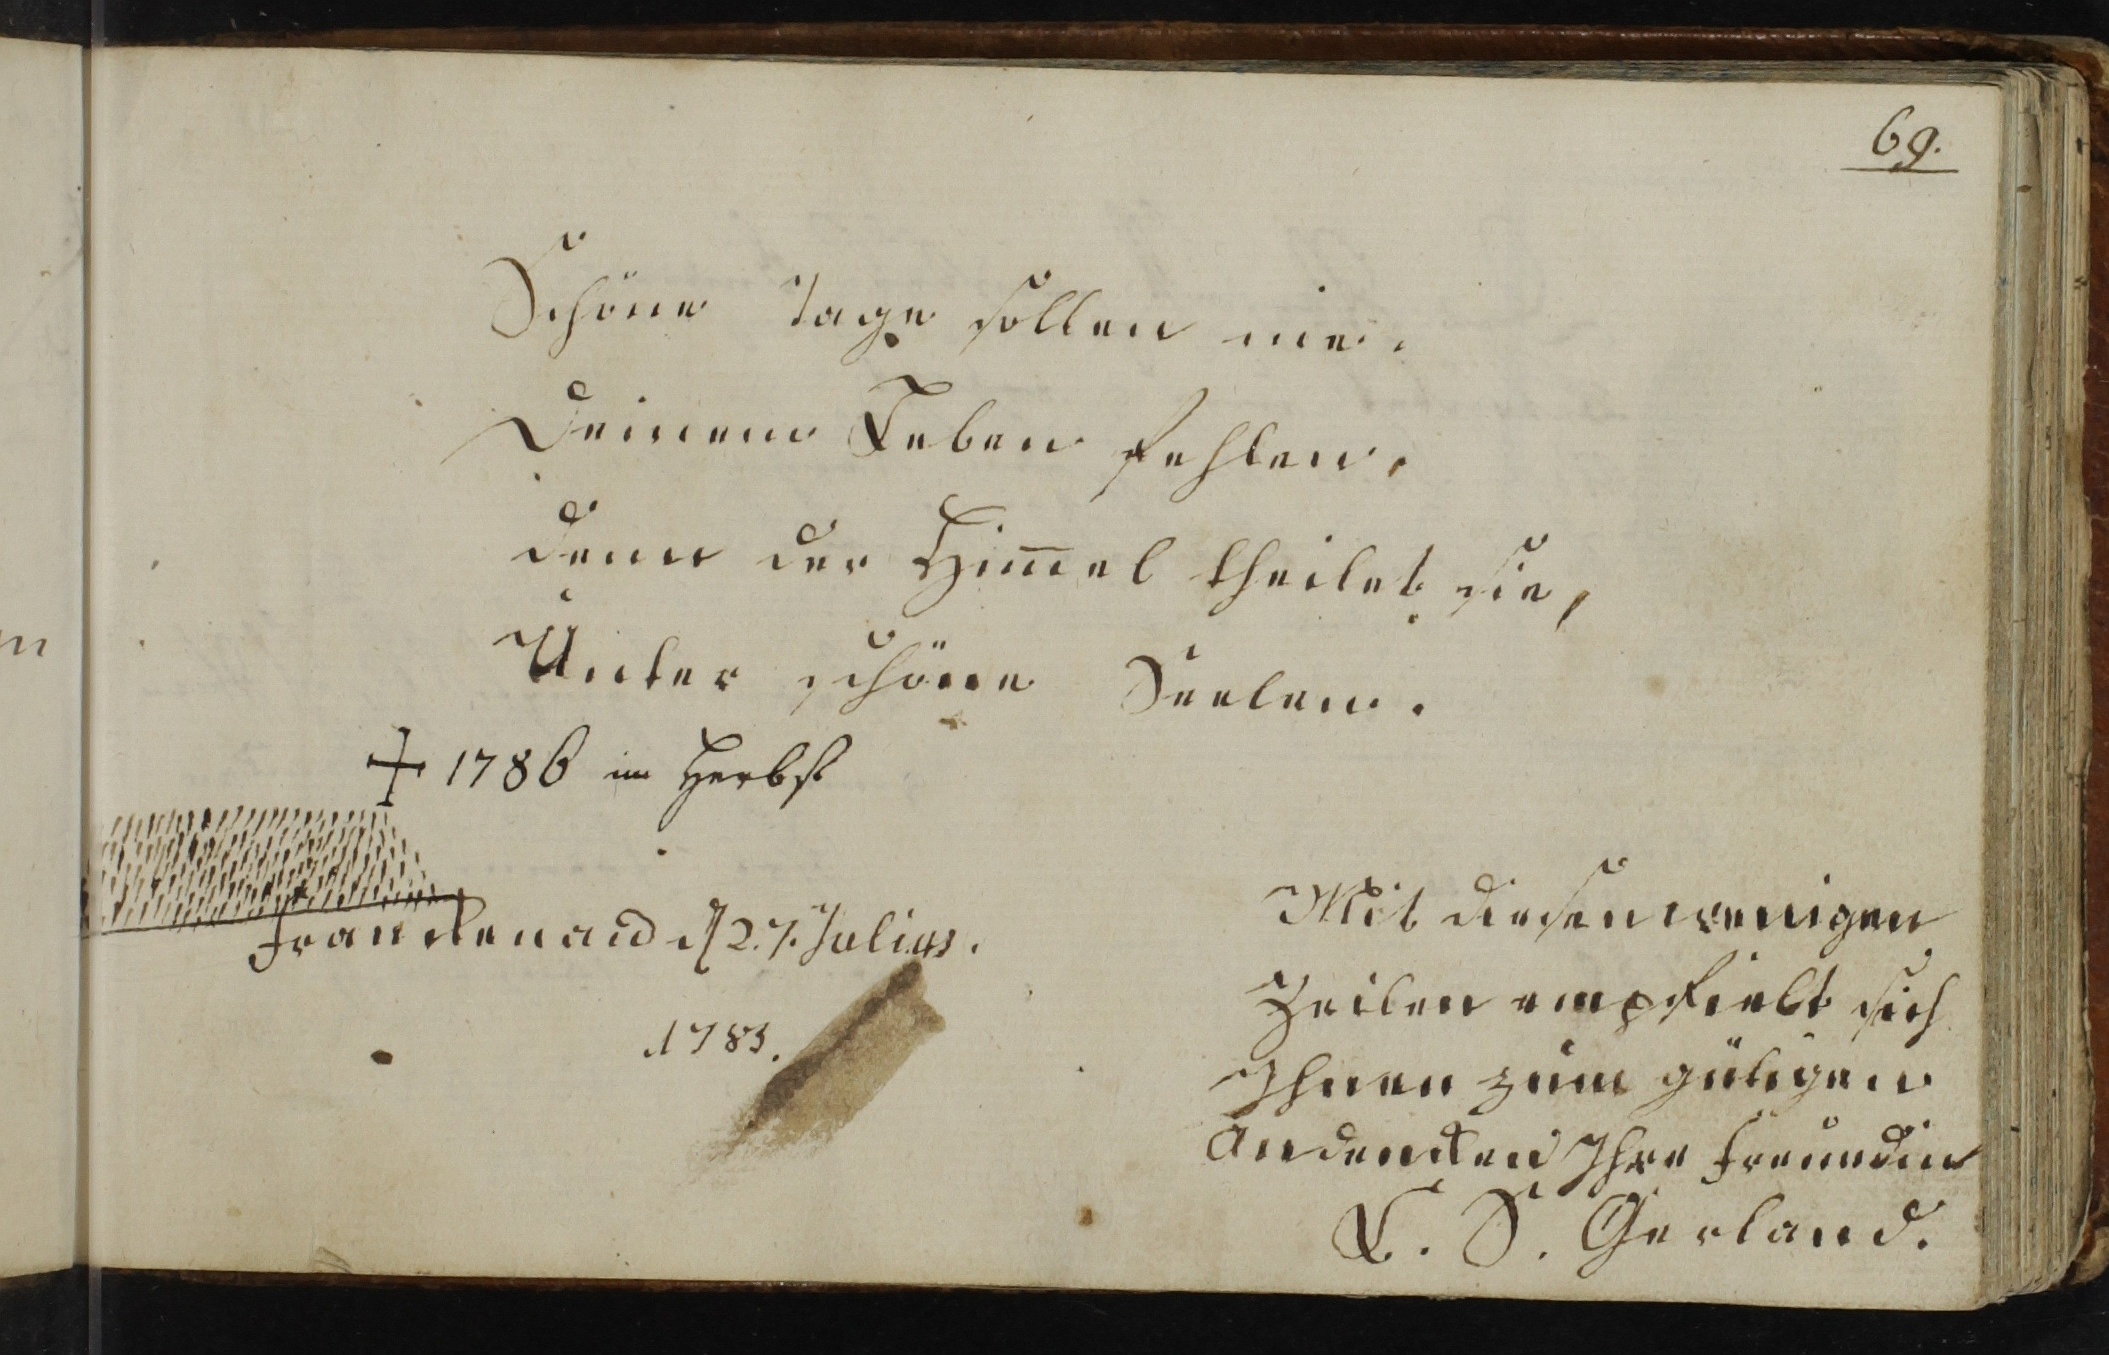 69.
Schöne Tage sollen nie.
Deinem Leben fehlen.
denn der Him̄el theilet sie,
Unter schöne Seelen.
† 1786 im Herbst
Franckenau d 27. Julius.
1783.
Mit diesen wenigen
Zeilen empfielt sich
Ihnen zum gütigen
andencken Ihre freundin
L. S. Gerland.